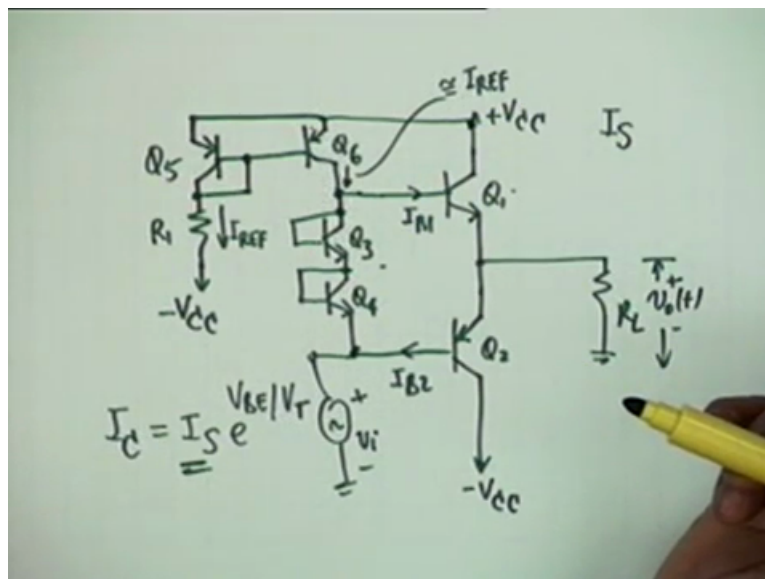 ≃ IREF
+VCC
IS
Q5
Q6
IB1
Q1
R1
IREF
Q3
Q4
-VCC
RL
+
vo(t)
-
Q2
IB2
IC = IS e^VBE/VT
+
~
vi
-
-VCC